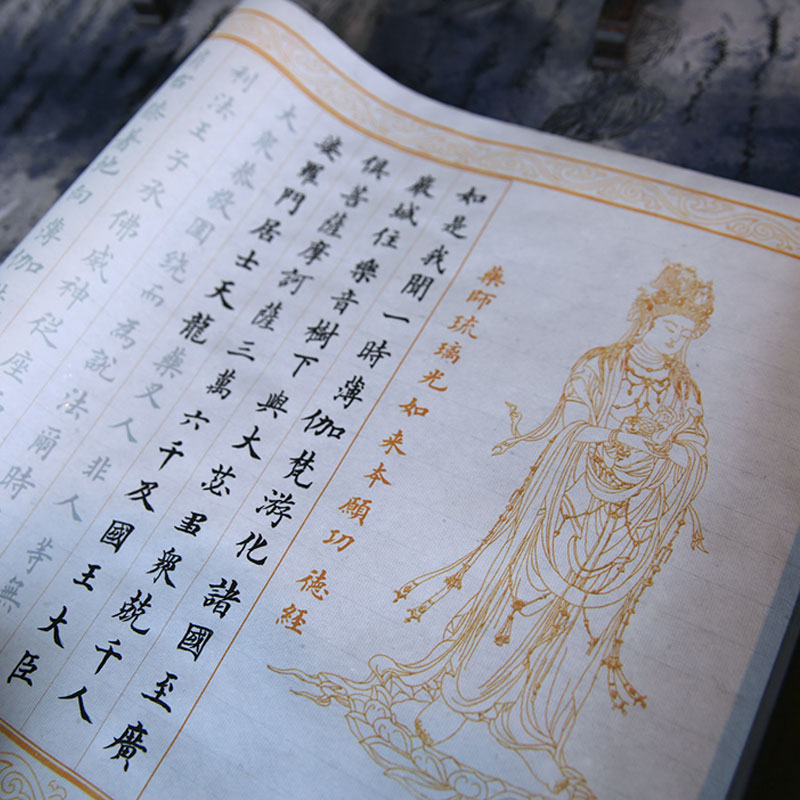 藥師琉璃光如来本願功德經
如是我聞一時薄伽梵游化諸國至廣
嚴城住樂音樹下與大苾芻衆八千人
俱菩薩摩訶薩三萬六千及國王大臣
婆羅門居士天龍藥叉人非人等無
大衆恭敬圍繞而為說法爾時
利法王子承佛威神從座
右膝著地向薄伽